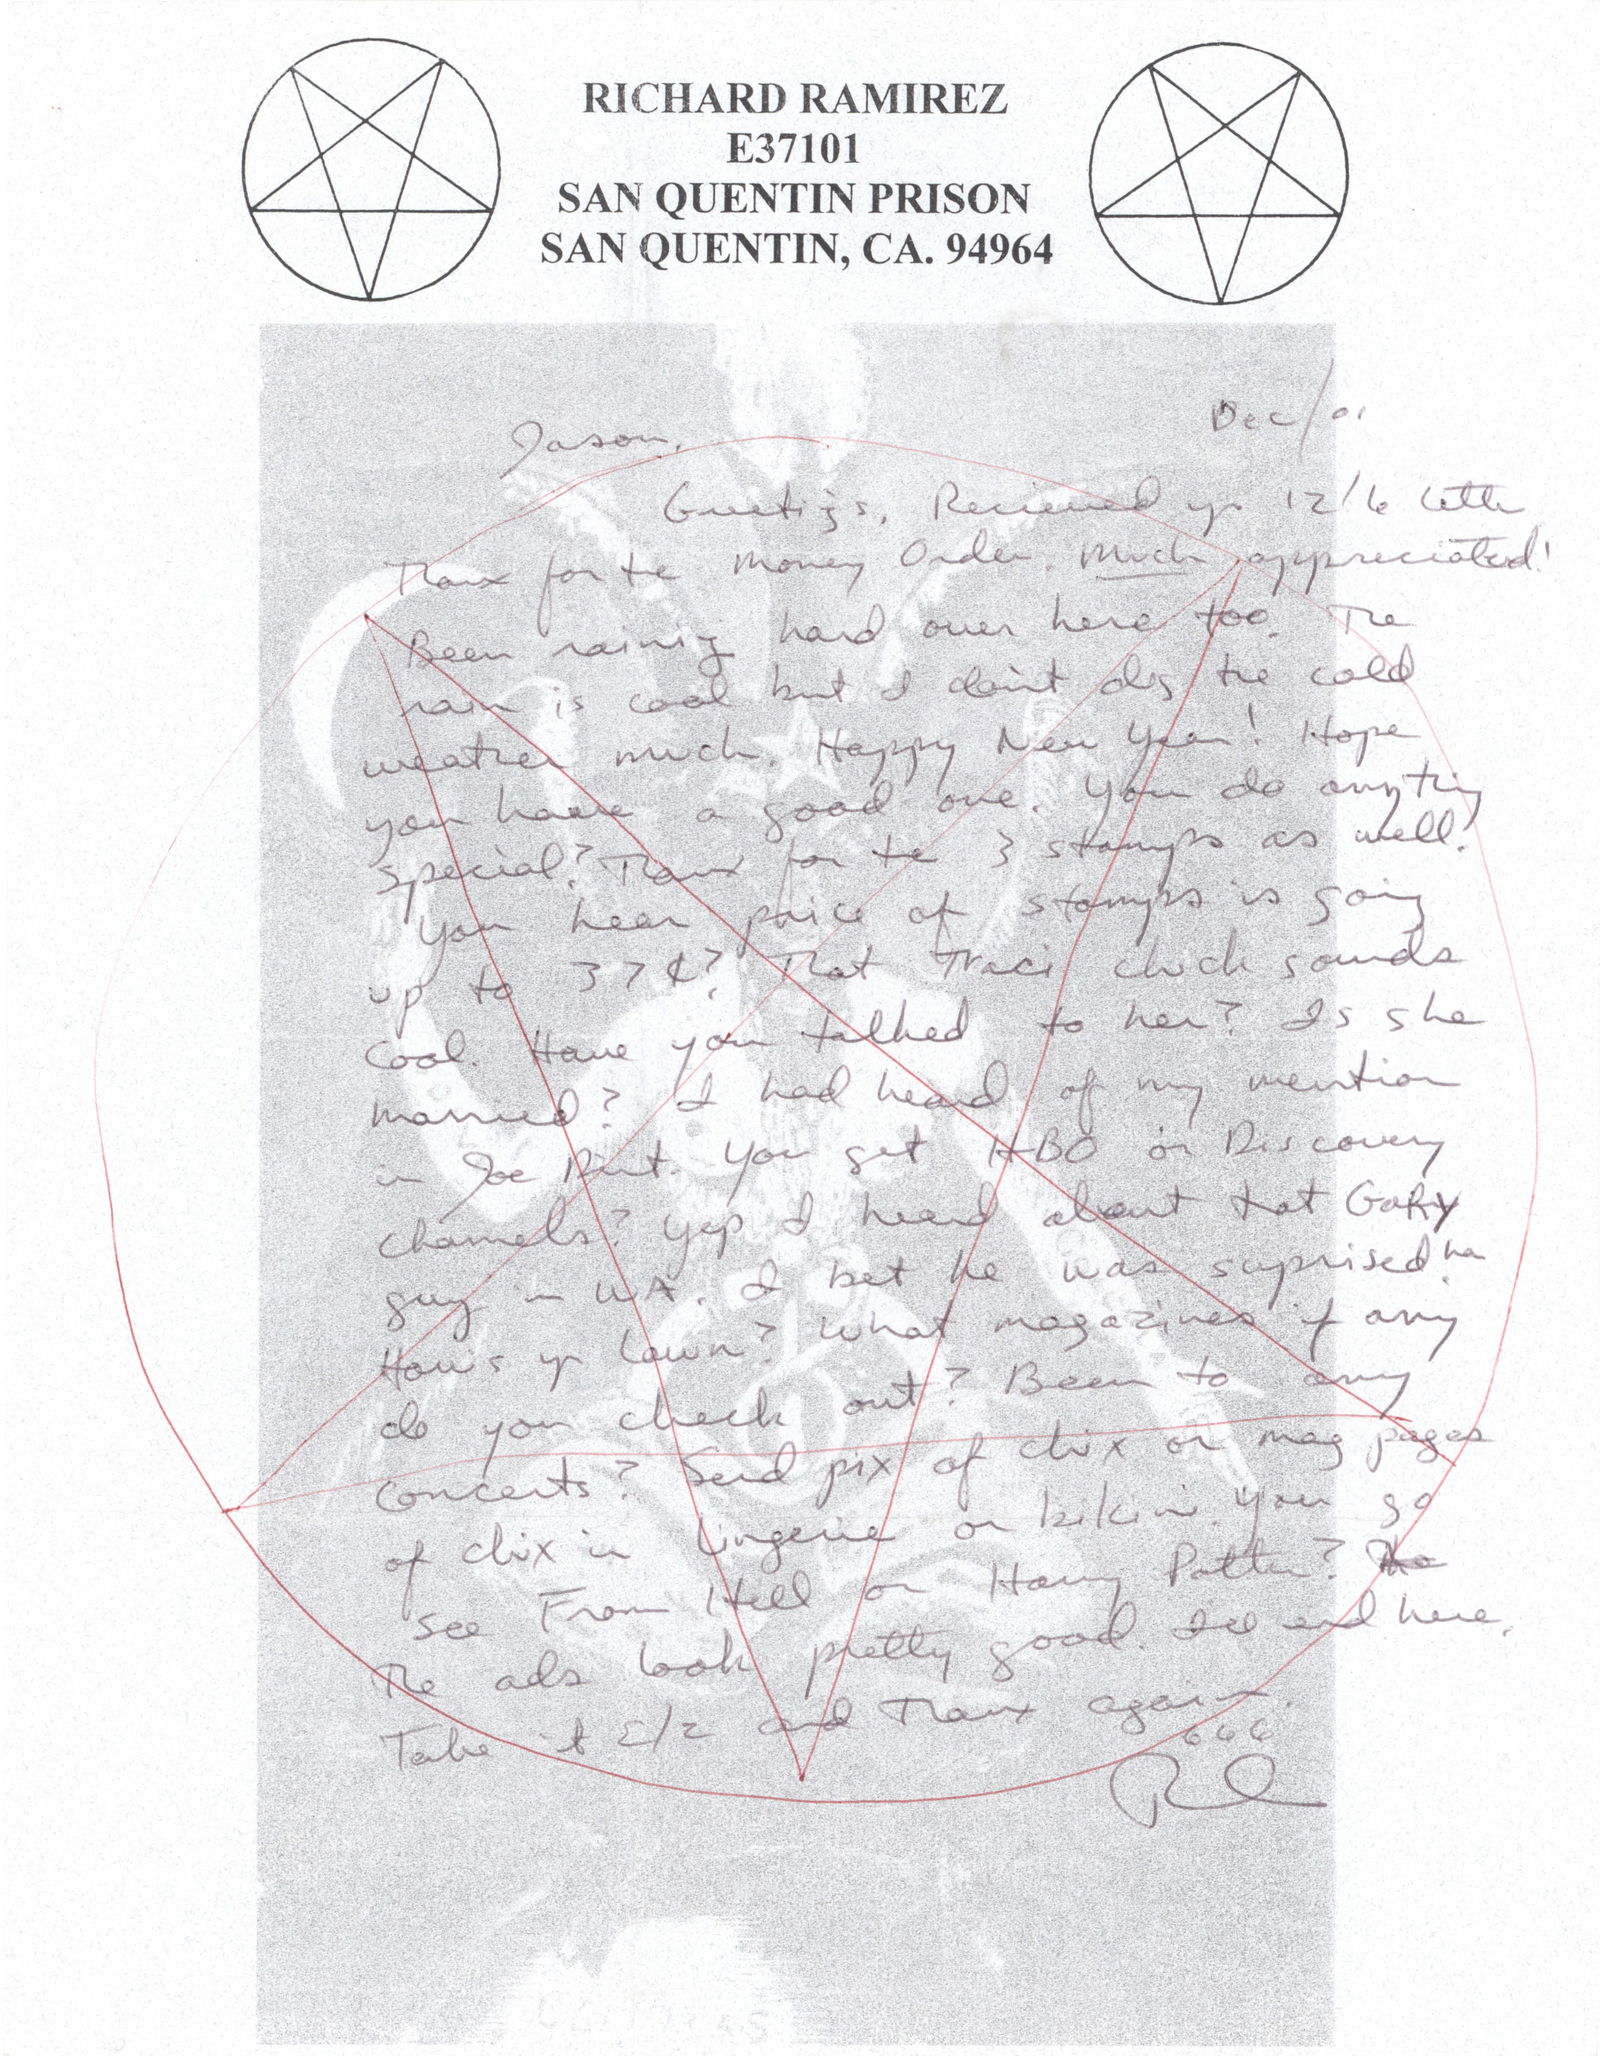 RICHARD RAMIREZ
E37101
SAN QUENTIN PRISON
SAN QUENTIN, CA. 94964
Dec/01
Jason,
Greetings, Recieved yr 12/6 letter
Thanx for te Money Order. Much appreciated!
Been raining hard over here too. The
rain is cool but I don't dig the cold
weather much. Happy New Year! Hope
you have a good one. You do anything
special? Thanx for te 3 stamps as well.
You hear price of stamps is going
up to 37¢? That Traci chick sounds
cool. Have you talked to her? Is she
married? I had heard of my mention
in Joe Dirt. You get HBO or Discovery
channels? Yep I heard about that Gary
guy in WA. I bet he was suprised. ha
How's yr lawn? What magazines if any
do you check out? Been to any
concerts? Send pix of chix or mag pages
of chix in lingerie or bikini. You go
see From Hell or Harry Potter?
The ads look pretty good. I'll end here.
Take it E/Z and Thanx again.
666